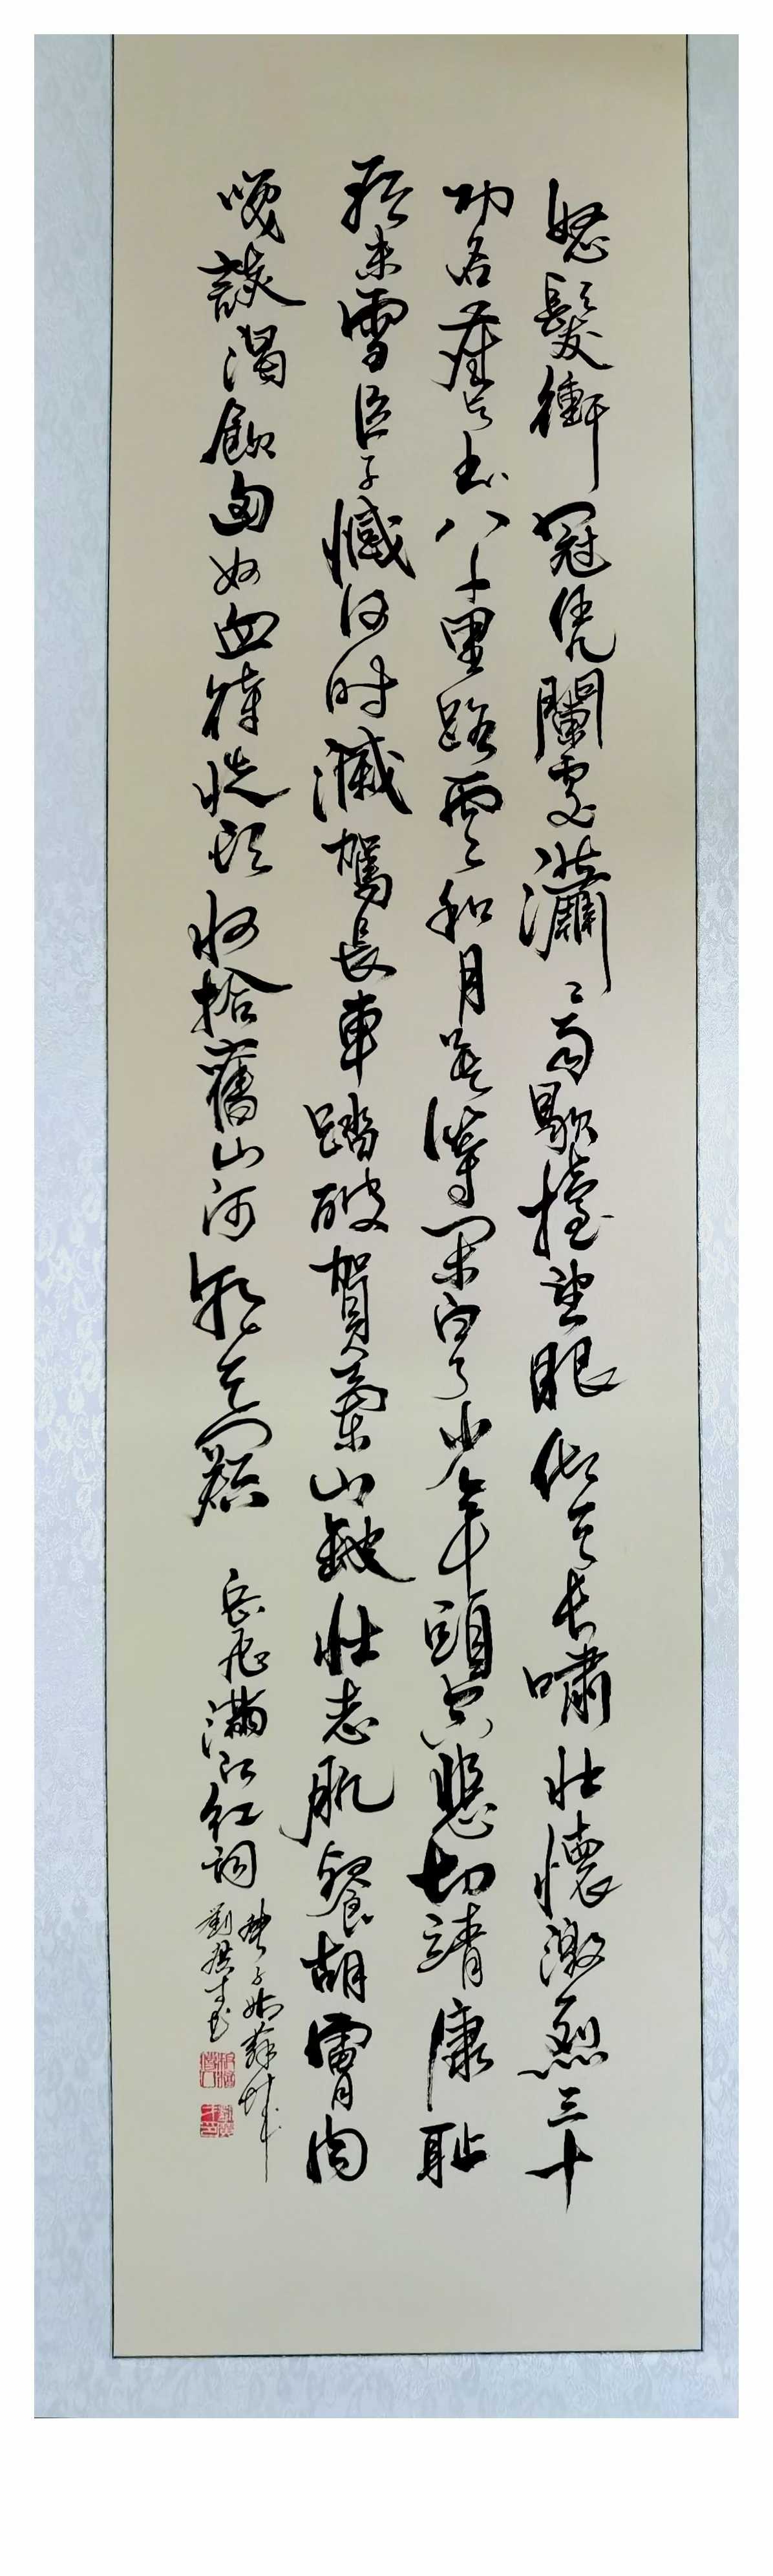 怒髮衝冠凭闌處瀟々雨歇擡望眼仰天長嘯壮懷激烈三十
功名塵与土八千里路雲和月莫等閑白了少年頭空悲切靖康恥
猶未雪臣子憾何时滅駕長車踏破賀蘭山缺壮志飢餐胡虜肉
笑談渴飲匈奴血待從頭收拾舊山河朝天闕 岳飛滿江紅詞
姑蘇城
劉